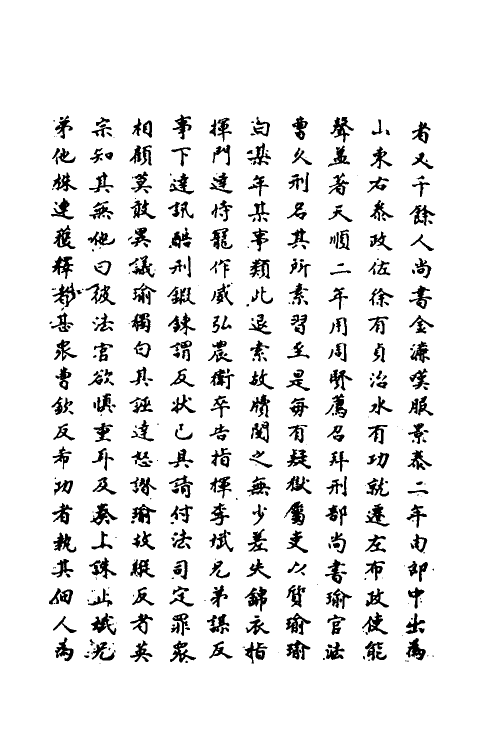 者又千餘人尚書金濂嘆服景泰二年由郎中出為
山東右叅政佐徐有貞治水有功就遷左布政使能
聲益著天順二年用周賢薦召拜刑部尚書瑜官法
曹久刑名其所素習至是每有疑獄屬吏以質瑜瑜
曰某年某事類此退索故牘閱之無少差失錦衣指
揮門達恃寵作威弘農衛卒告指揮李斌兄弟謀反
事下達訊酷刑鍛鍊謂反狀已具請付法司定罪眾
相顧莫敢異議瑜獨白其誣達怒譖瑜故縱反者英
宗知其無他曰彼法官欲慎重耳及奏上誅止斌兄
弟他株連獲釋者甚眾曹欽反希功者執其佃人為